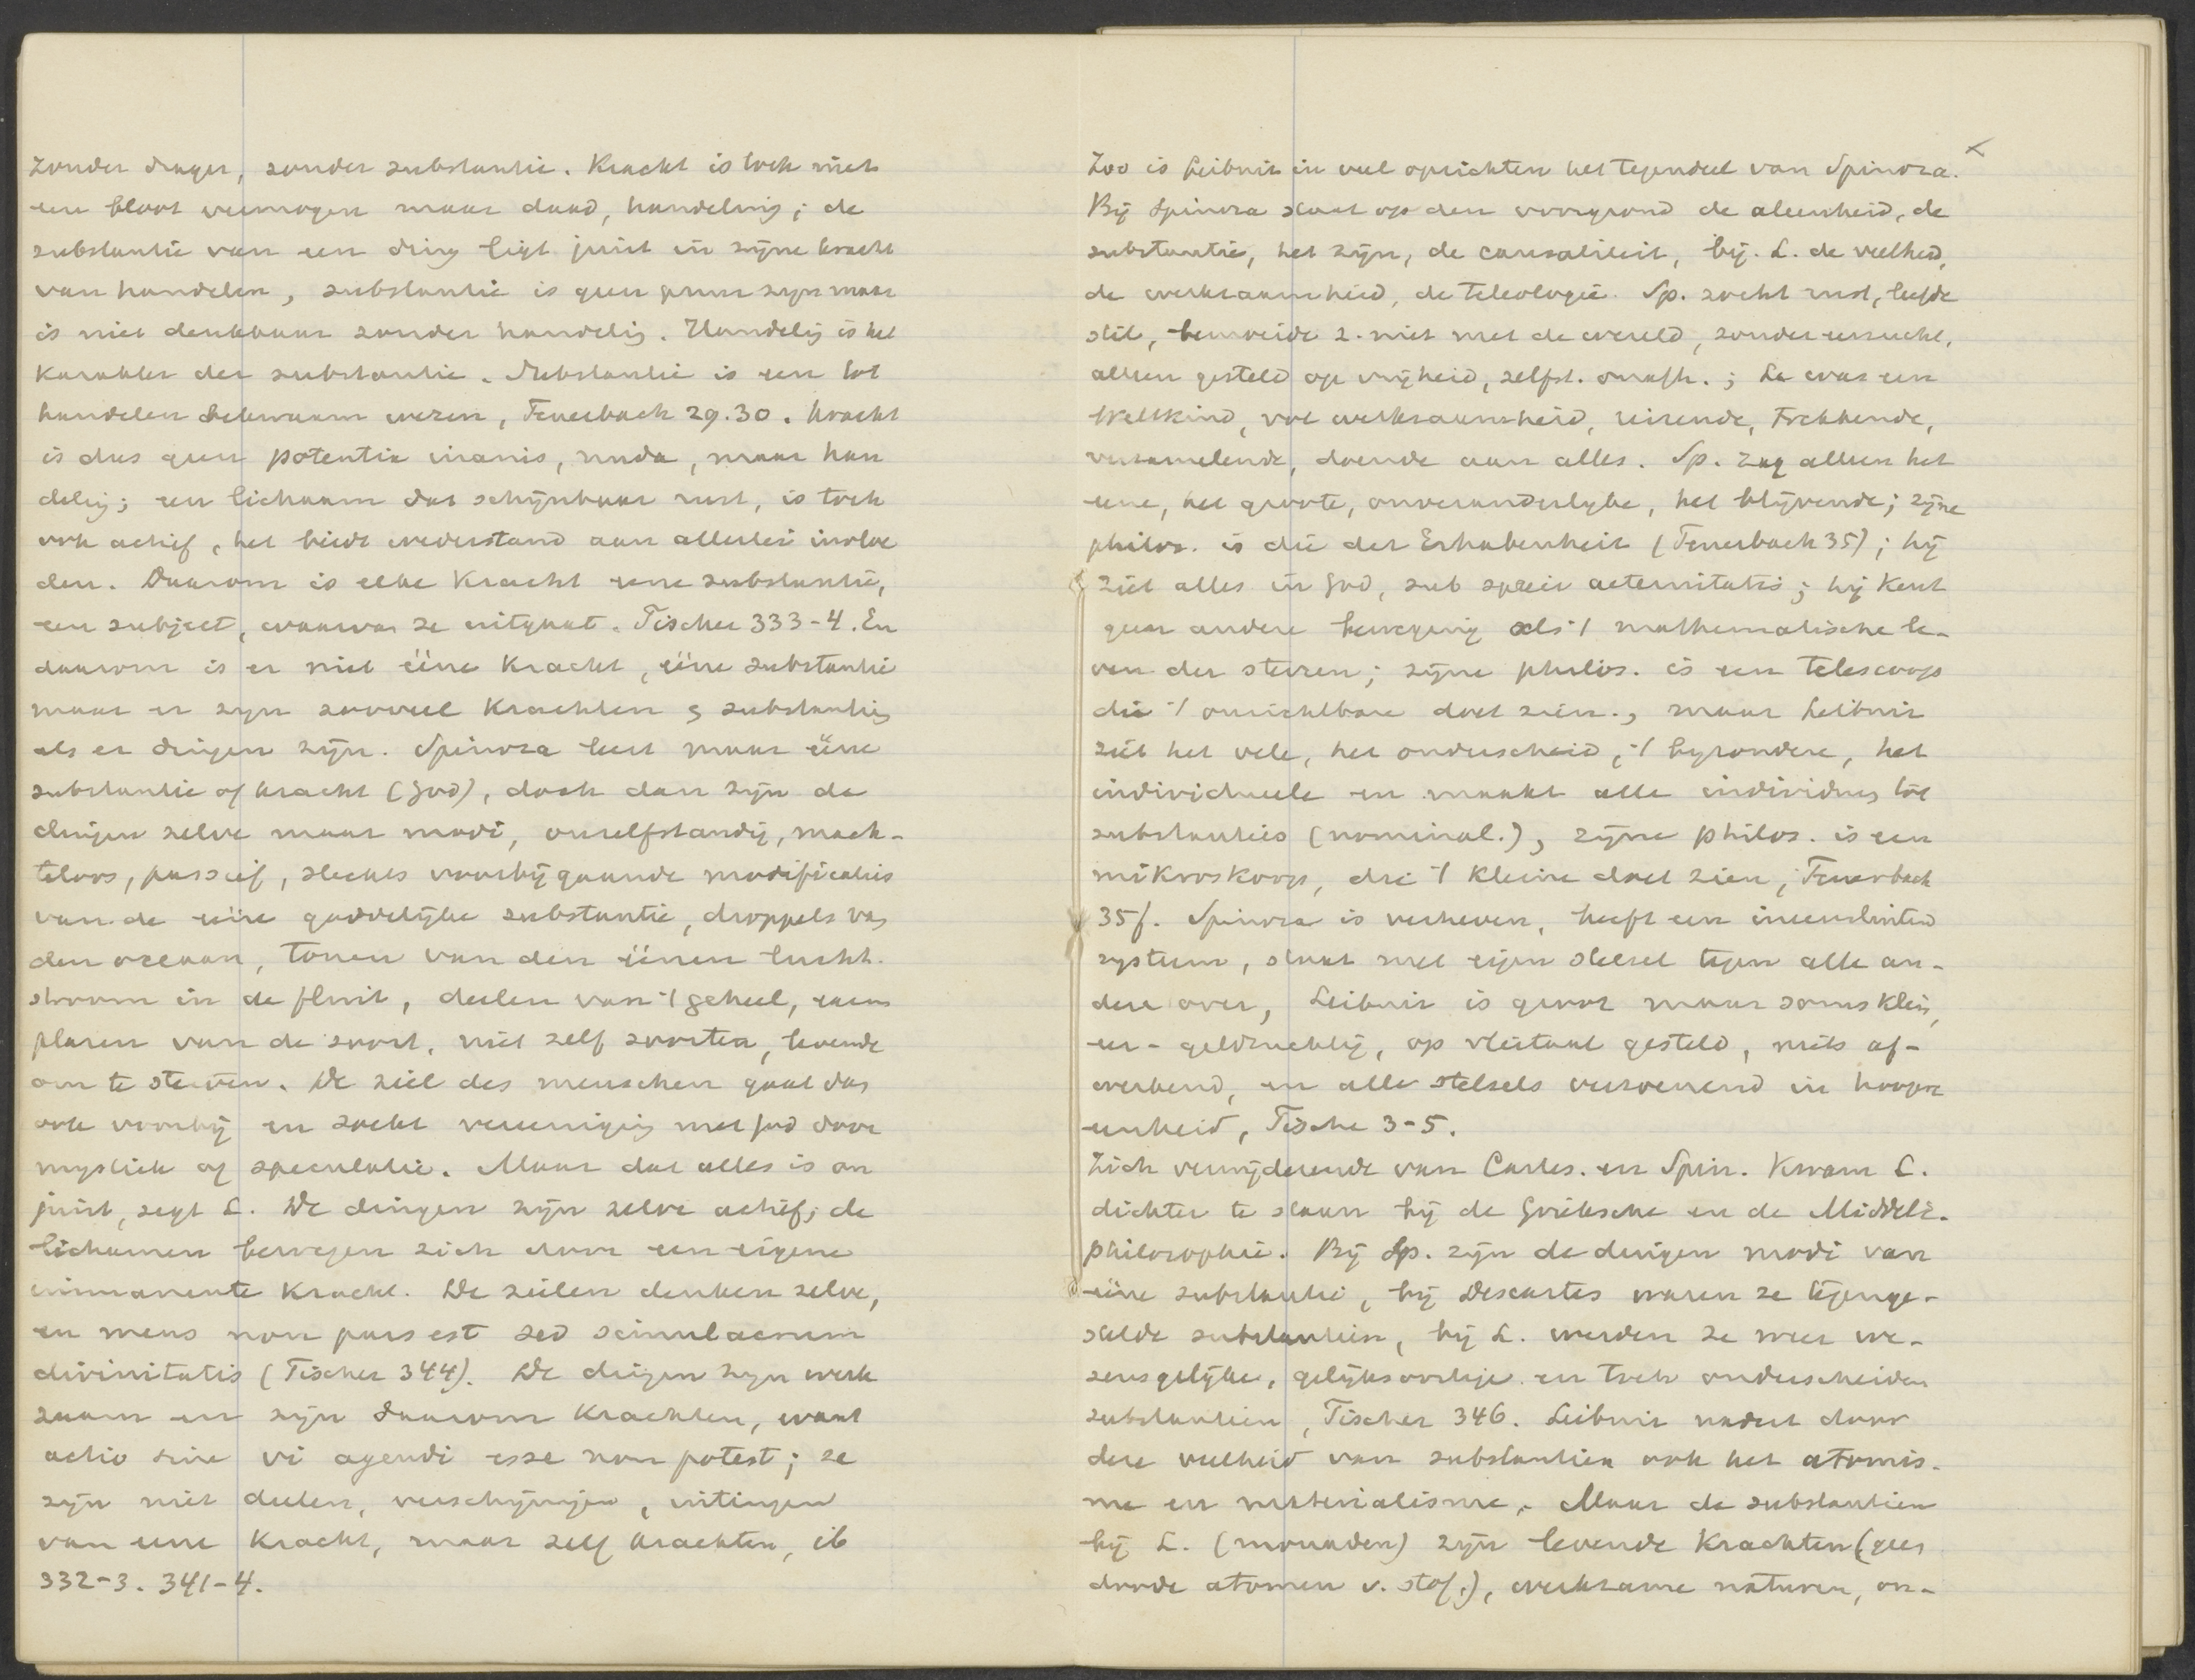 zonder drager, zonder substantie. Kracht is toch niet
een bloot vermogen maar daad, handeling; de
substantie van een ding ligt juist in zijne kracht
van handelen, substantie is geen puur zijn maar
is niet denkbaar zonder handelig. Handelig is het
karakter der substantie. Substantie is een tot
handelen bekwaam wezen, Feuerbach 29.30. Kracht
is dus geen potentia inanis, nuda, maar han
delig; een lichaam dat schijnbaar rust, is toch
ook actief, het biedt wederstand aan allerlei invloe
den. Daarom is elke kracht eene substantie,
een subject, waarvan ze uitgaat. Fischer 333-4. En
daarom is er niet ééne kracht, ééne substantie
maar er zijn zooveel krachten & substanties
als er dingen zijn. Spinoza leert maar ééne
substantie of kracht (God), doch dan zijn de
dingen zelve maar modi, onzelfstandig, mach-
teloos, passief, slechts voorbijgaande modificaties
van de ééne goddelijke substantie, droppels van
den oceaan, tonen van den éénen lucht.
stroom in de fluit, deelen van 't geheel, exem
plaren van de soort, niet zelf soorten, levende
om te sterven. De ziel des menschen gaat dan
ook voorbij en zoekt vereeniging met God door
mystiek of speculatie. Maar dat alles is on
juist, zegt L. De dingen zijn zelve actief; de
lichamen bewegen zich door een eigene
immanente kracht. De zielen denken zelve,
en mens non pars est sed simulacrum
divinitatis (Fischer 344). De dingen zijn werk
zaam en zijn daarom krachten, want
actio sine vi agendi esse non potest; ze
zijn niet deelen, verschijningen, uitingen
van eene kracht, maar zelf krachten, ib
332-3. 341-4.
Zoo is Leibniz in veel opzichten het tegendeel van Spinoza. ×
Bij Spinoza staat op den voorgrond de aleenheid, de
substantie, het zijn, de causaliteit, bij. L. de veelheid,
de werkzaamheid, de teleologie. Sp. zocht rust, leefde
stil, bemoeide z. niet met de wereld, zonder eerzucht,
alleen gesteld op vrijheid, zelfst. onafh.; L. was een
Weltkind, vol werkzaamheid, reizende, trekkende,
verzamelende, doende aan alles. Sp. zag alleen het
eene, het groote, onveranderlijke, het blijvende; zijne
philos. is die der Erhabenheit (Feuerbach 35); hij
ziet alles in God, sub specie aeternitatis; hij kent
geen andere beweging als 't mathematische le-
ven der sterren; zijne philos. is een telescoop
die 't onzichtbare doet zien., maar Leibniz
ziet het vele, het onderscheid, 't bijzondere, het
individueele en maakt alle individuen tot
substanties (nominal.), zijne philos. is een
mikroskoop, die 't kleine doet zien, Feuerbach
35f. Spinoza is verheven, heeft een ineensluitend
systeem, staat met eigen stelsel tegen alle an-
dere over, Leibniz is groot maar soms klein,
eer- geldzuchtig, op vleitaal gesteld, niets af-
werkend, en alle stelsels verzoenend in hoogere
eenheid, Fische 3-5.
Zich verwijderende van Cartes. en Spin. kwam L.
dichter te staan bij de Grieksche en de Middele.
philosophie. Bij Sp. zijn de dingen modi van
ééne substantie, bij Descartes waren ze tegenge-
stelde substantien, bij L. werden ze weer we-
zensgelijke, gelijksoortige en toch onderscheiden
substantien, Fischer 346. Leibniz nadert door
deze veelheid van substantien ook het atomis-
me en materialisme,. Maar de substantien
bij L. (monaden) zijn levende krachten (geen
doode atomen v. stof.), werkzame naturen, on-